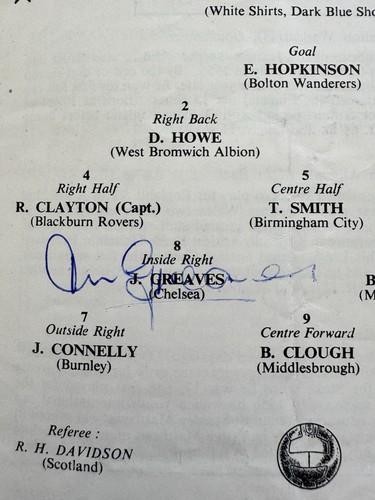 (White Shirts, Dark Blue Sho
Goal
E. HOPKINSON
(Bolton Wanderers)
2
Right Back
D. HOWE
(West Bromwich Albion)
4
Right Half
R. CLAYTON (Capt.)
(Blackburn Rovers)
5
Centre Half
T. SMITH
(Birmingham City)
8
Inside Right
J. GREAVES
(Chelsea)
7
Outside Right
J. CONNELLY
(Burnley)
9
Centre Forward
B. CLOUGH
(Middlesbrough)
Referee :
R. H. DAVIDSON
(Scotland)